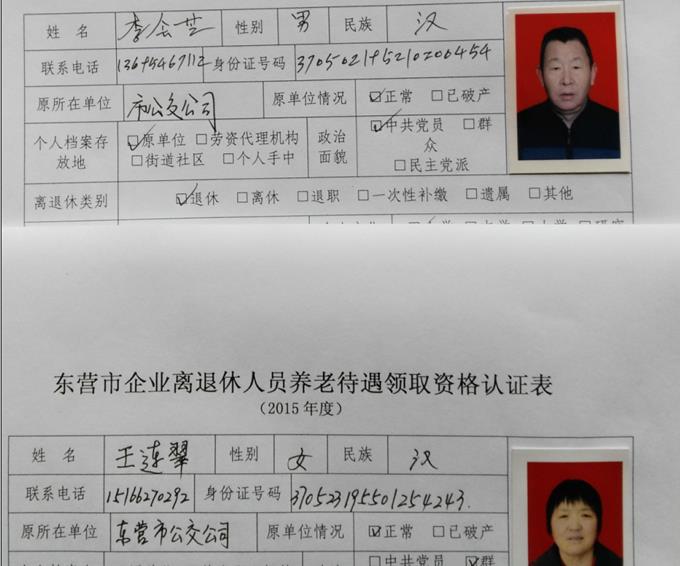 姓 名 李会芝 性别 男 民族 汉
联系电话 13695467112 身份证号码
原所在单位 市公交公司 原单位情况 ☑正常 □已破产
个人档案存放地 ☑原单位 □劳资代理机构 □街道社区 □个人手中 政治面貌 ☑中共党员 □群众 □民主党派
离退休类别 ☑退休 □离休 □退职 □一次性补缴 □遗属 □其他
东营市企业离退休人员养老待遇领取资格认证表
（2015年度）
姓 名 王连翠 性别 女 民族 汉
联系电话 15166270292 身份证号码 370523195501254243.
原所在单位 东营市公交公司 原单位情况 ☑正常 □已破产
□中共党员 ☑群